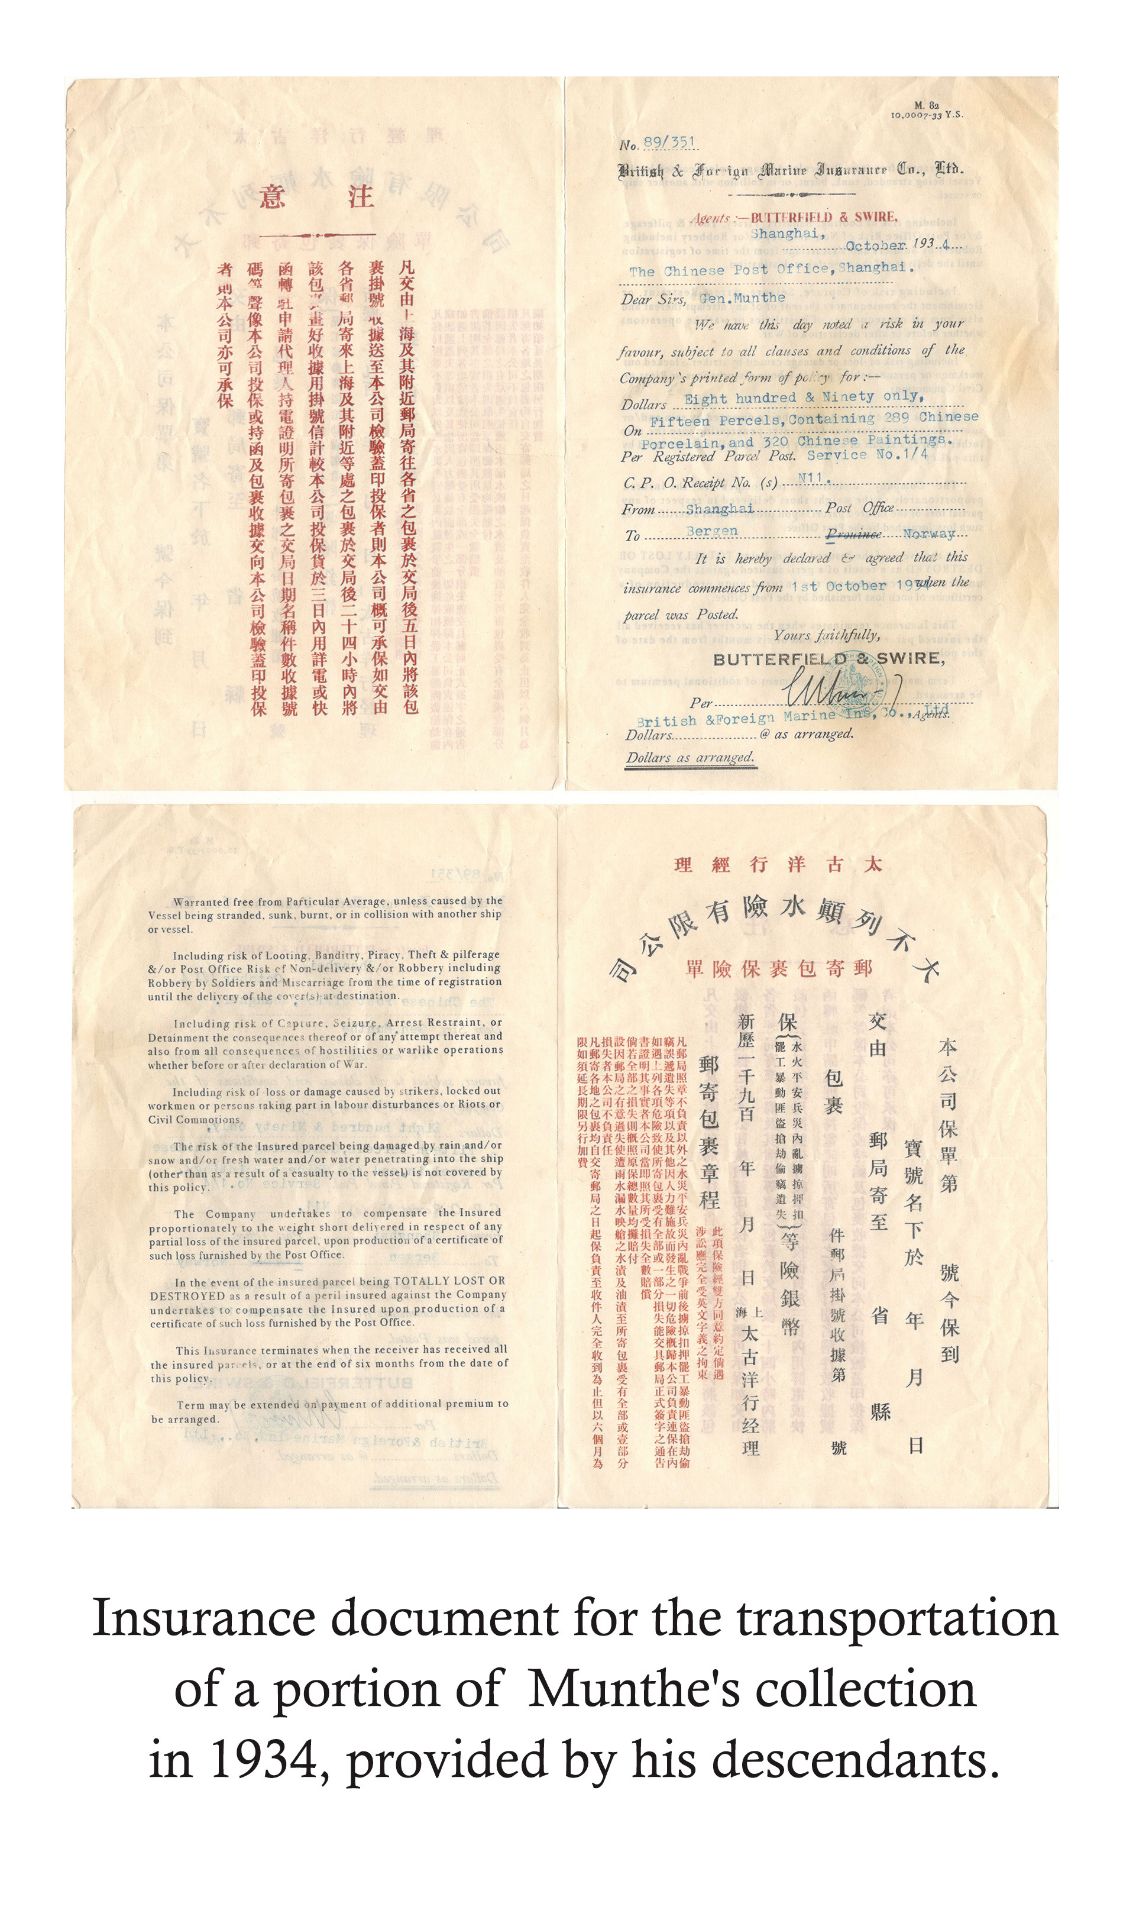 意 注
凡交由上海及其附近郵局寄往各省之包裹於交局後五日內將該包
裹掛號收據送至本公司檢驗蓋印投保者則本公司概可承保如交由
各省郵局寄來上海及其附近等處之包裹於交局後二十四小時內將
該包裹畫好收據用掛號信計較本公司投保貨於三日內用詳電或快
函轉駐申請代理人持電證明所寄包裹之交局日期名稱件數收據號
碼等聲像本公司投保或持函及包裹收據交向本公司檢驗蓋印投保
者則本公司亦可承保
M. 82
10,0007-33 Y.S.
No. 89/351
British & Foreign Marine Insurance Co., Ltd.
Agents:—BUTTERFIELD & SWIRE,
Shanghai, October 1934
The Chinese Post Office, Shanghai.
Dear Sirs, Gen.Munthe
We have this day noted a risk in your
favour, subject to all clauses and conditions of the
Company's printed form of policy for:—
Dollars Eight hundred & Ninety only,
On Fifteen Percels, Containing 289 Chinese
Porcelain, and 320 Chinese Paintings.
Per Registered Parcel Post. Service No.1/4
C. P. O. Receipt No. (s) N11.
From Shanghai Post Office
To Bergen Province Norway
It is hereby declared & agreed that this
insurance commences from 1st October 1934 when the
parcel was Posted.
Yours faithfully,
BUTTERFIELD & SWIRE,
Per
British &Foreign Marine Ins, Co., Ltd Agents.
Dollars @ as arranged.
Dollars as arranged.
Warranted free from Particular Average, unless caused by the
Vessel being stranded, sunk, burnt, or in collision with another ship
or vessel.
Including risk of Looting, Banditry, Piracy, Theft & pilferage
&/or Post Office Risk of Non-delivery &/or Robbery including
Robbery by Soldiers and Miscarriage from the time of registration
until the delivery of the cover(s) at destination.
Including risk of Capture, Seizure, Arrest Restraint, or
Detainment the consequences thereof or of any attempt thereat and
also from all consequences of hostilities or warlike operations
whether before or after declaration of War.
Including risk of loss or damage caused by strikers, locked out
workmen or persons taking part in labour disturbances or Riots or
Civil Commotions.
The risk of the Insured parcel being damaged by rain and/or
snow and/or fresh water and/or water penetrating into the ship
(other than as a result of a casualty to the vessel) is not covered by
this policy.
The Company undertakes to compensate the Insured
proportionately to the weight short delivered in respect of any
partial loss of the insured parcel, upon production of a certificate of
such loss furnished by the Post Office.
In the event of the insured parcel being TOTALLY LOST OR
DESTROYED as a result of a peril insured against the Company
undertakes to compensate the Insured upon production of a
certificate of such loss furnished by the Post Office.
This Insurance terminates when the receiver has received all
the insured parcels, or at the end of six months from the date of
this policy.
Term may be extended on payment of additional premium to
be arranged.
理經行洋古太
司公限有險水顚列不大
單險保裹包寄郵
本公司保單第 號今保到
寶號名下於 年 月 日
交由 郵局寄至 省 縣
包裹 件郵局掛號收據第 號
保(水火平安兵災內亂擄掠押扣
罷工暴動匪盜搶劫偷竊遺失)等險銀幣
新歷一千九百 年 月 日 上海太古洋行经理
郵寄包裹章程
此項保險經雙方同意約定倘遇
涉訟應完全受英文字義之拘束
凡郵局照章不負責以外之水災平安兵災內亂戰爭前後擄掠扣押罷工暴動匪盜搶劫偷
竊誤遞遺失等項以及其他因人力難施故而發生之一切危險概歸本公司負責連保在內
如遇上列各項危險致使所寄包裹受有全部或一部分損失能交具郵局正式簽字之通告
書證明其事實者本公司當即照其所受損失全數賠償
倘若全部之損失則概照原保總數量均攤賠付
設因郵局之有意過失使遭雨水漏水映艙之水漬及油漬至所寄包裹受有全部或壹部分
損失者本公司不負責任
凡郵寄各地之包裹均自交寄郵局之日起保負責至收件人完全收到為止但以六個月為
限如須延長期限另行加費
Insurance document for the transportation
of a portion of Munthe's collection
in 1934, provided by his descendants.